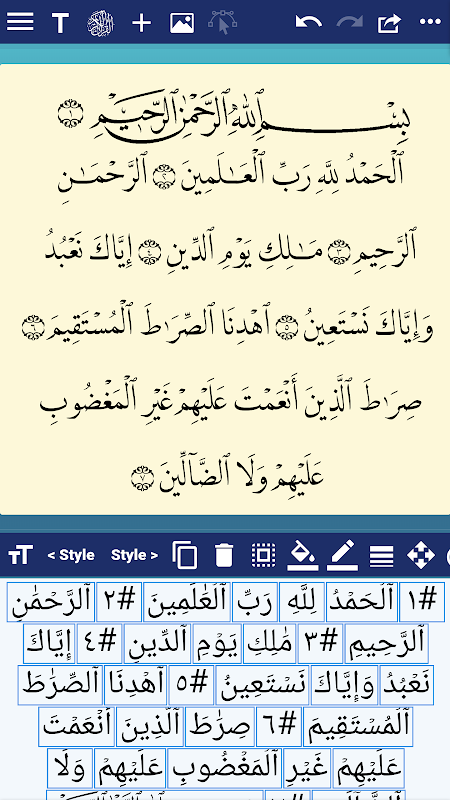 T
بِسۡمِ ٱللَّهِ ٱلرَّحۡمَٰنِ ٱلرَّحِيمِ ١
ٱلۡحَمۡدُ لِلَّهِ رَبِّ ٱلۡعَـٰلَمِينَ ٢ ٱلرَّحۡمَـٰنِ
ٱلرَّحِيمِ ٣ مَـٰلِكِ يَوۡمِ ٱلدِّينِ ٤ إِيَّاكَ نَعۡبُدُ
وَإِيَّاكَ نَسۡتَعِينُ ٥ ٱهۡدِنَا ٱلصِّرَٰطَ ٱلۡمُسۡتَقِيمَ ٦
صِرَٰطَ ٱلَّذِينَ أَنۡعَمۡتَ عَلَيۡهِمۡ غَيۡرِ ٱلۡمَغۡضُوبِ
عَلَيۡهِمۡ وَلَا ٱلضَّآلِّينَ ٧
TT < Style Style >
#١ ٱلۡحَمۡدُ لِلَّهِ رَبِّ ٱلۡعَٰلَمِينَ #٢ ٱلرَّحۡمَٰنِ
ٱلرَّحِيمِ #٣ مَٰلِكِ يَوۡمِ ٱلدِّينِ #٤ إِيَّاكَ
نَعۡبُدُ وَإِيَّاكَ نَسۡتَعِينُ #٥ ٱهۡدِنَا ٱلصِّرَٰطَ
ٱلۡمُسۡتَقِيمَ #٦ صِرَٰطَ ٱلَّذِينَ أَنۡعَمۡتَ
عَلَيۡهِمۡ غَيۡرِ ٱلۡمَغۡضُوبِ عَلَيۡهِمۡ وَلَا